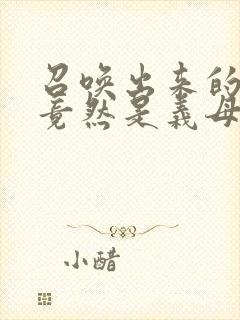 召唤出来的
竟然是义母
小醋